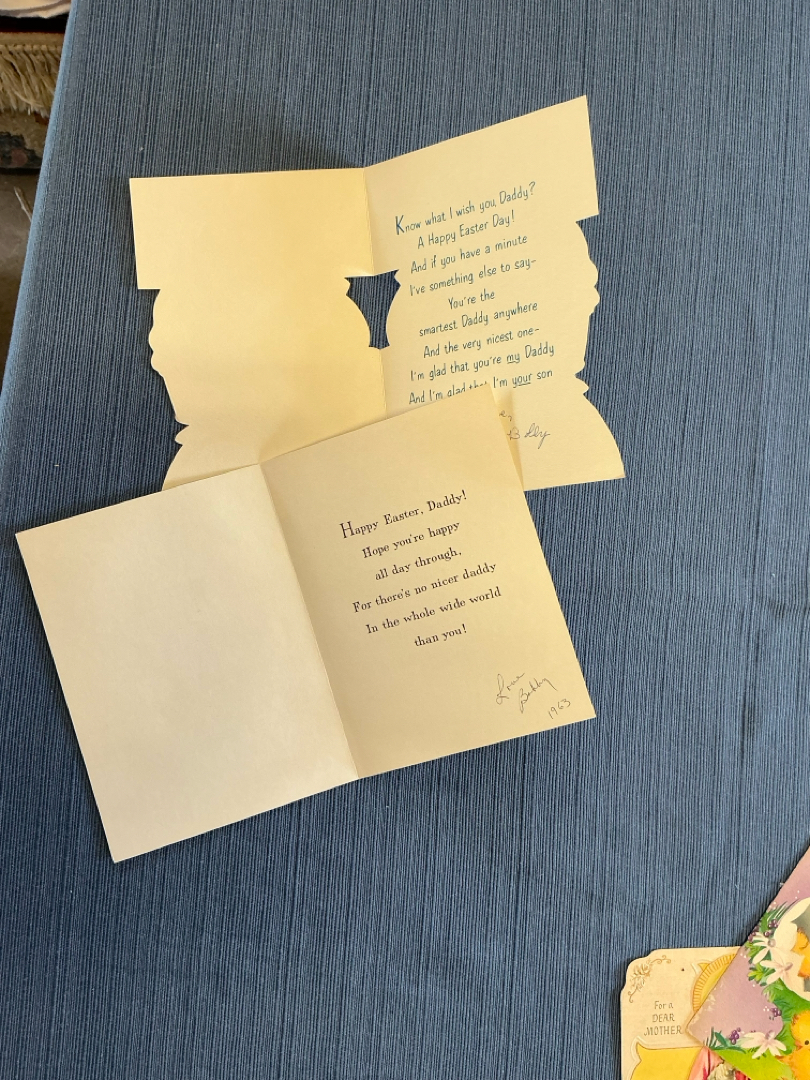 Know what I wish you, Daddy?
A Happy Easter Day!
And if you have a minute
I've something else to say-
You're the
smartest Daddy anywhere
And the very nicest one-
I'm glad that you're my Daddy
And I'm glad that I'm your son
Happy Easter, Daddy!
Hope you're happy
all day through,
For there's no nicer daddy
In the whole wide world
than you!
Love
Bobby
1963
For a
DEAR
MOTHER